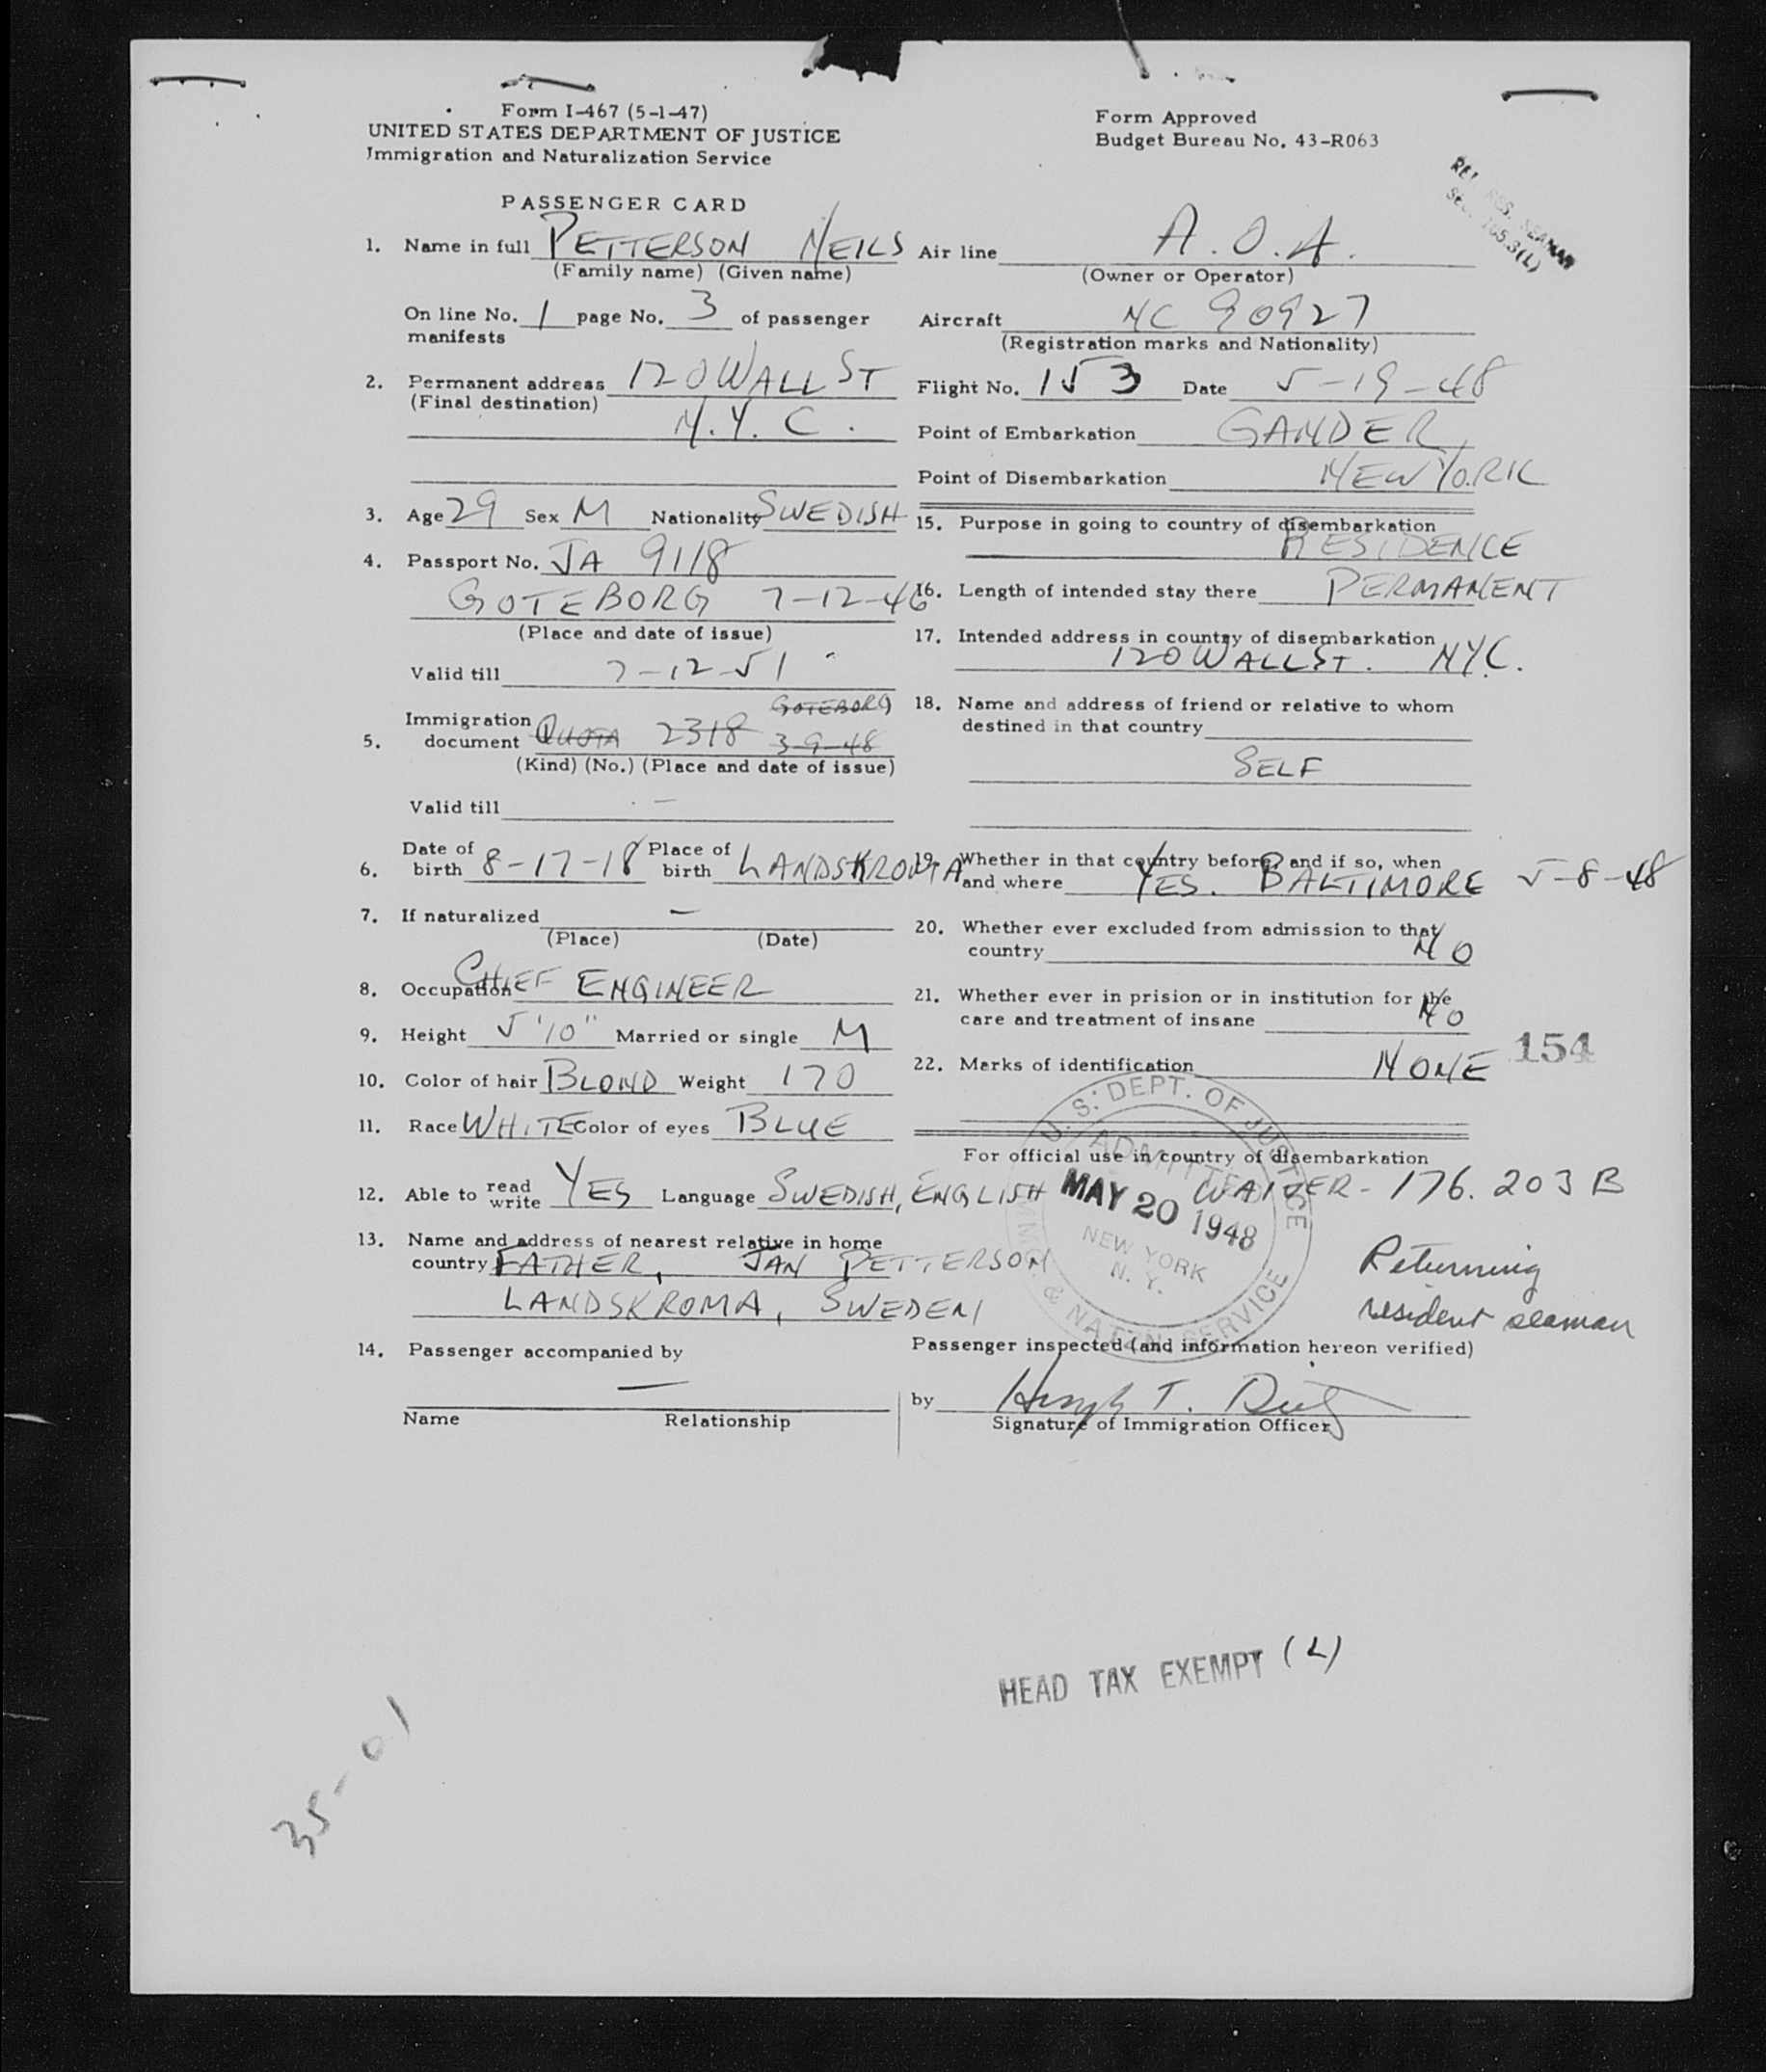 Form I-467 (5-1-47)
UNITED STATES DEPARTMENT OF JUSTICE
Immigration and Naturalization Service
Form Approved
Budget Bureau No. 43-R063
PASSENGER CARD
1. Name in full PETTERSON NEILS
(Family name) (Given name)
On line No. 1 page No. 3 of passenger
manifests
2. Permanent address 120 WALL ST
(Final destination)
N.Y.C.
3. Age 29 Sex M Nationality SWEDISH
4. Passport No. JA 9118
GOTEBORG 7-12-46
(Place and date of issue)
Valid till 7-12-51
GOTEBORG
Immigration
5. document QUOTA 2318 3-9-48
(Kind) (No.) (Place and date of issue)
Valid till —
6. Date of birth 8-17-18 Place of birth LANDSKRONA
7. If naturalized —
(Place) (Date)
8. Occupation CHIEF ENGINEER
9. Height 5'10" Married or single M
10. Color of hair BLOND Weight 170
11. Race WHITE Color of eyes BLUE
12. Able to read write YES Language SWEDISH, ENGLISH
13. Name and address of nearest relative in home
country FATHER, JAN PETTERSON
LANDSKRONA, SWEDEN
14. Passenger accompanied by
—
Name Relationship
Air line A.O.A.
(Owner or Operator)
Aircraft NC 90927
(Registration marks and Nationality)
Flight No. 153 Date 5-19-48
Point of Embarkation GANDER
Point of Disembarkation NEW YORK
15. Purpose in going to country of disembarkation
RESIDENCE
16. Length of intended stay there PERMANENT
17. Intended address in country of disembarkation
120 WALL ST. NYC.
18. Name and address of friend or relative to whom
destined in that country
SELF
19. Whether in that country before, and if so, when
and where YES. BALTIMORE 5-8-48
20. Whether ever excluded from admission to that
country NO
21. Whether ever in prision or in institution for the
care and treatment of insane NO
154
22. Marks of identification NONE
For official use in country of disembarkation
U.S. DEPT. OF JUSTICE
ADMITTED
MAY 20 1948
NEW YORK
N.Y.
IMMG. & NAT'N SERVICE
WAIVER - 176.203 B
Returning
resident seaman
Passenger inspected (and information hereon verified)
by
Signature of Immigration Officer
HEAD TAX EXEMPT (L)
35-01